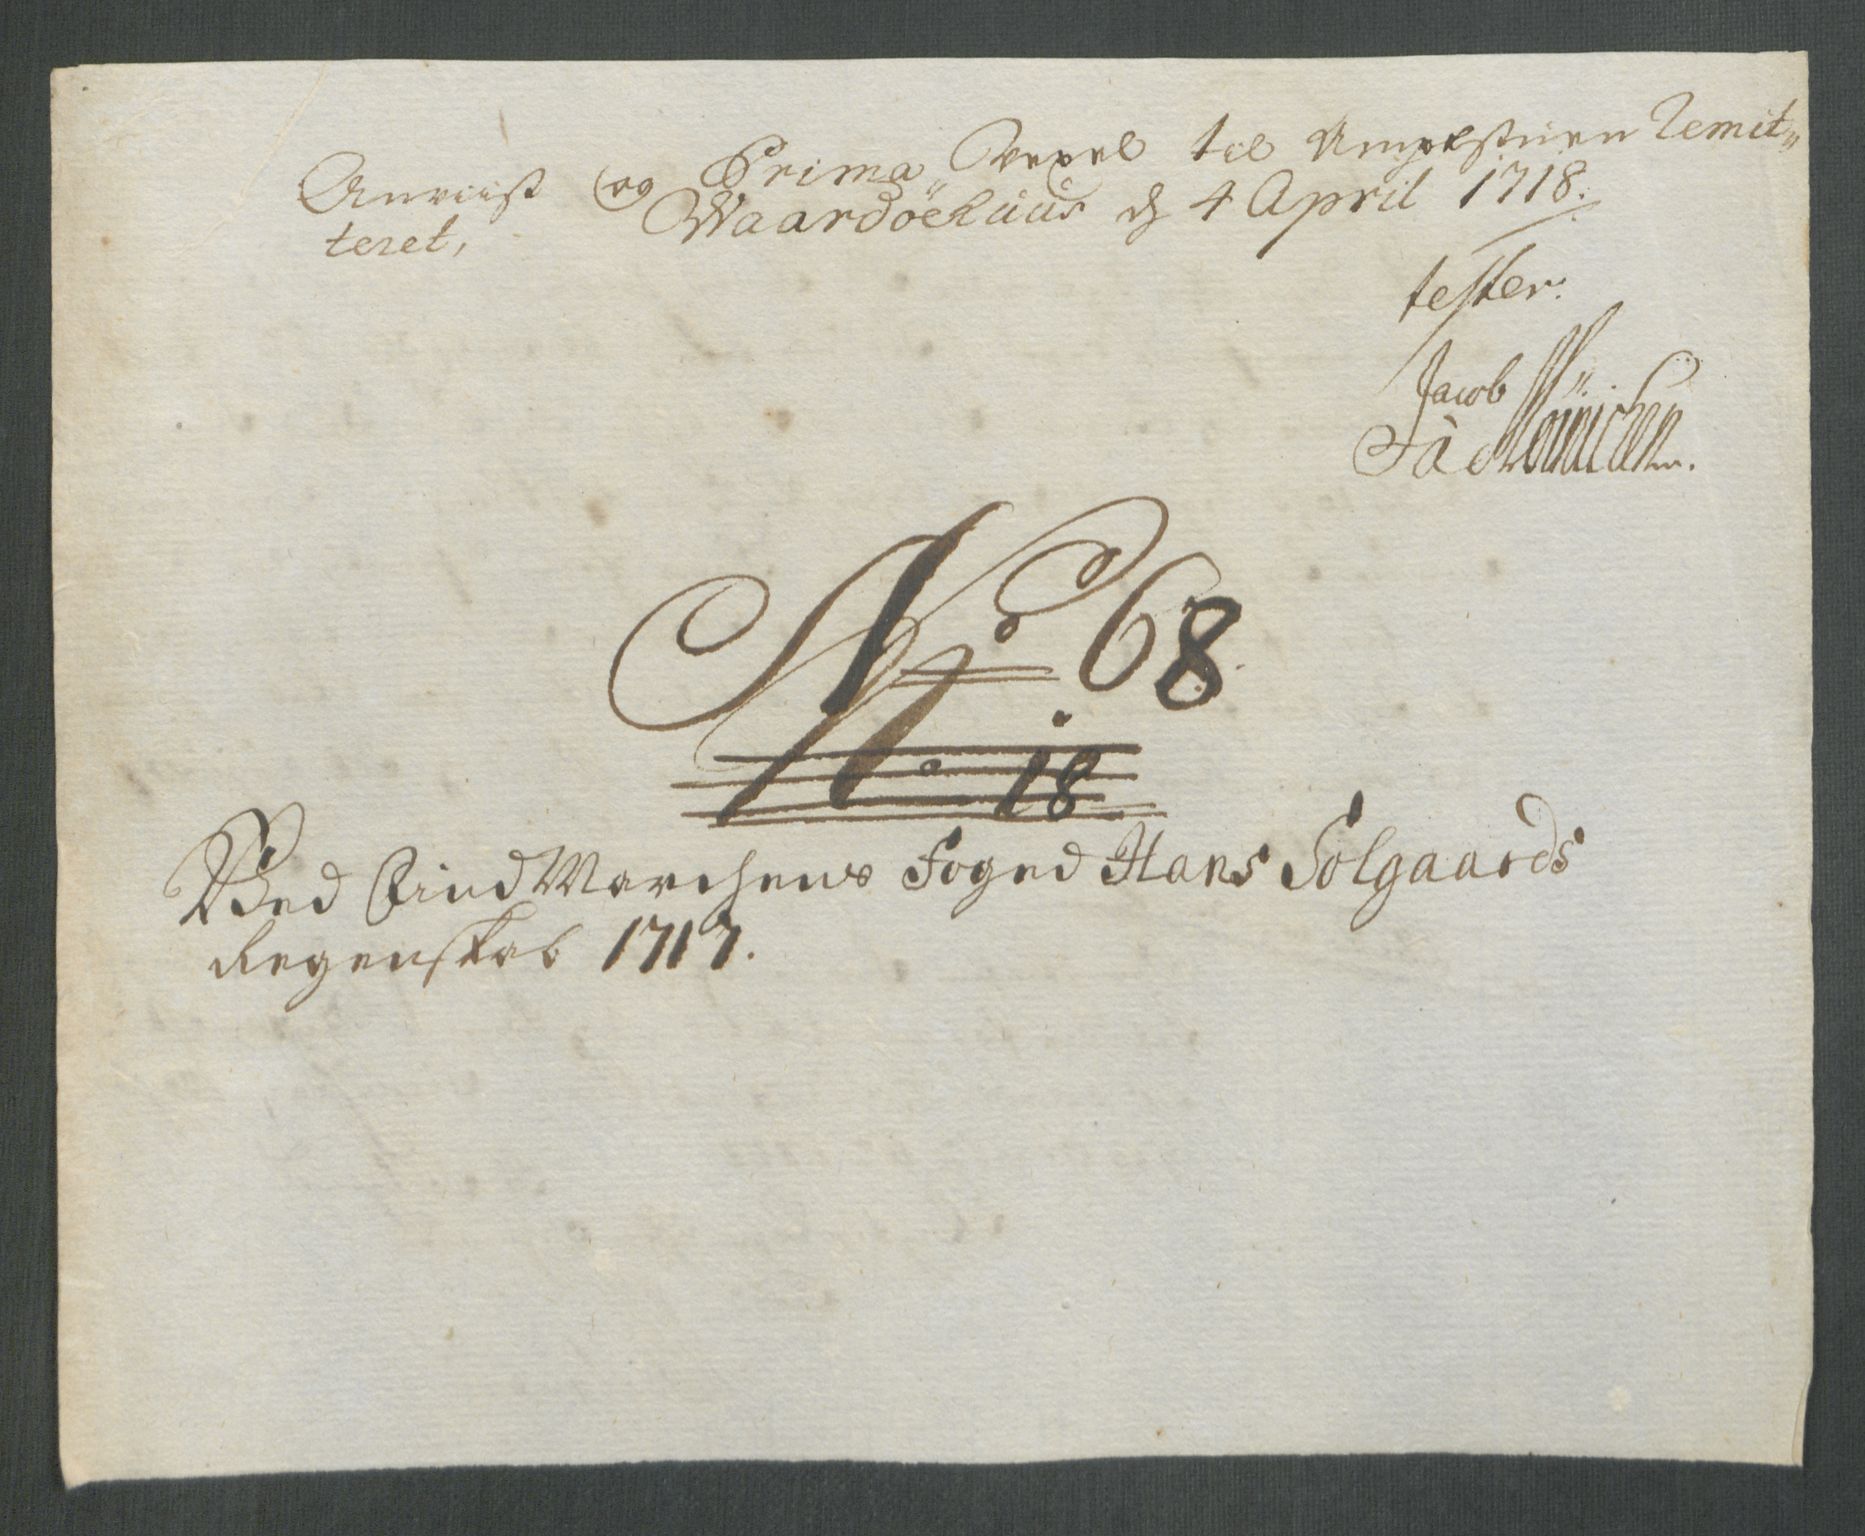 Anviist og Prima Vexel til Ampstuen Remit„
teret, Waardöehuus d. 4 April 1718.
tester.
Jacob
Mönichen.
No 68.
No 18
Ved FindMarchens Foged Hans Solgaards
Regenskab 1717.